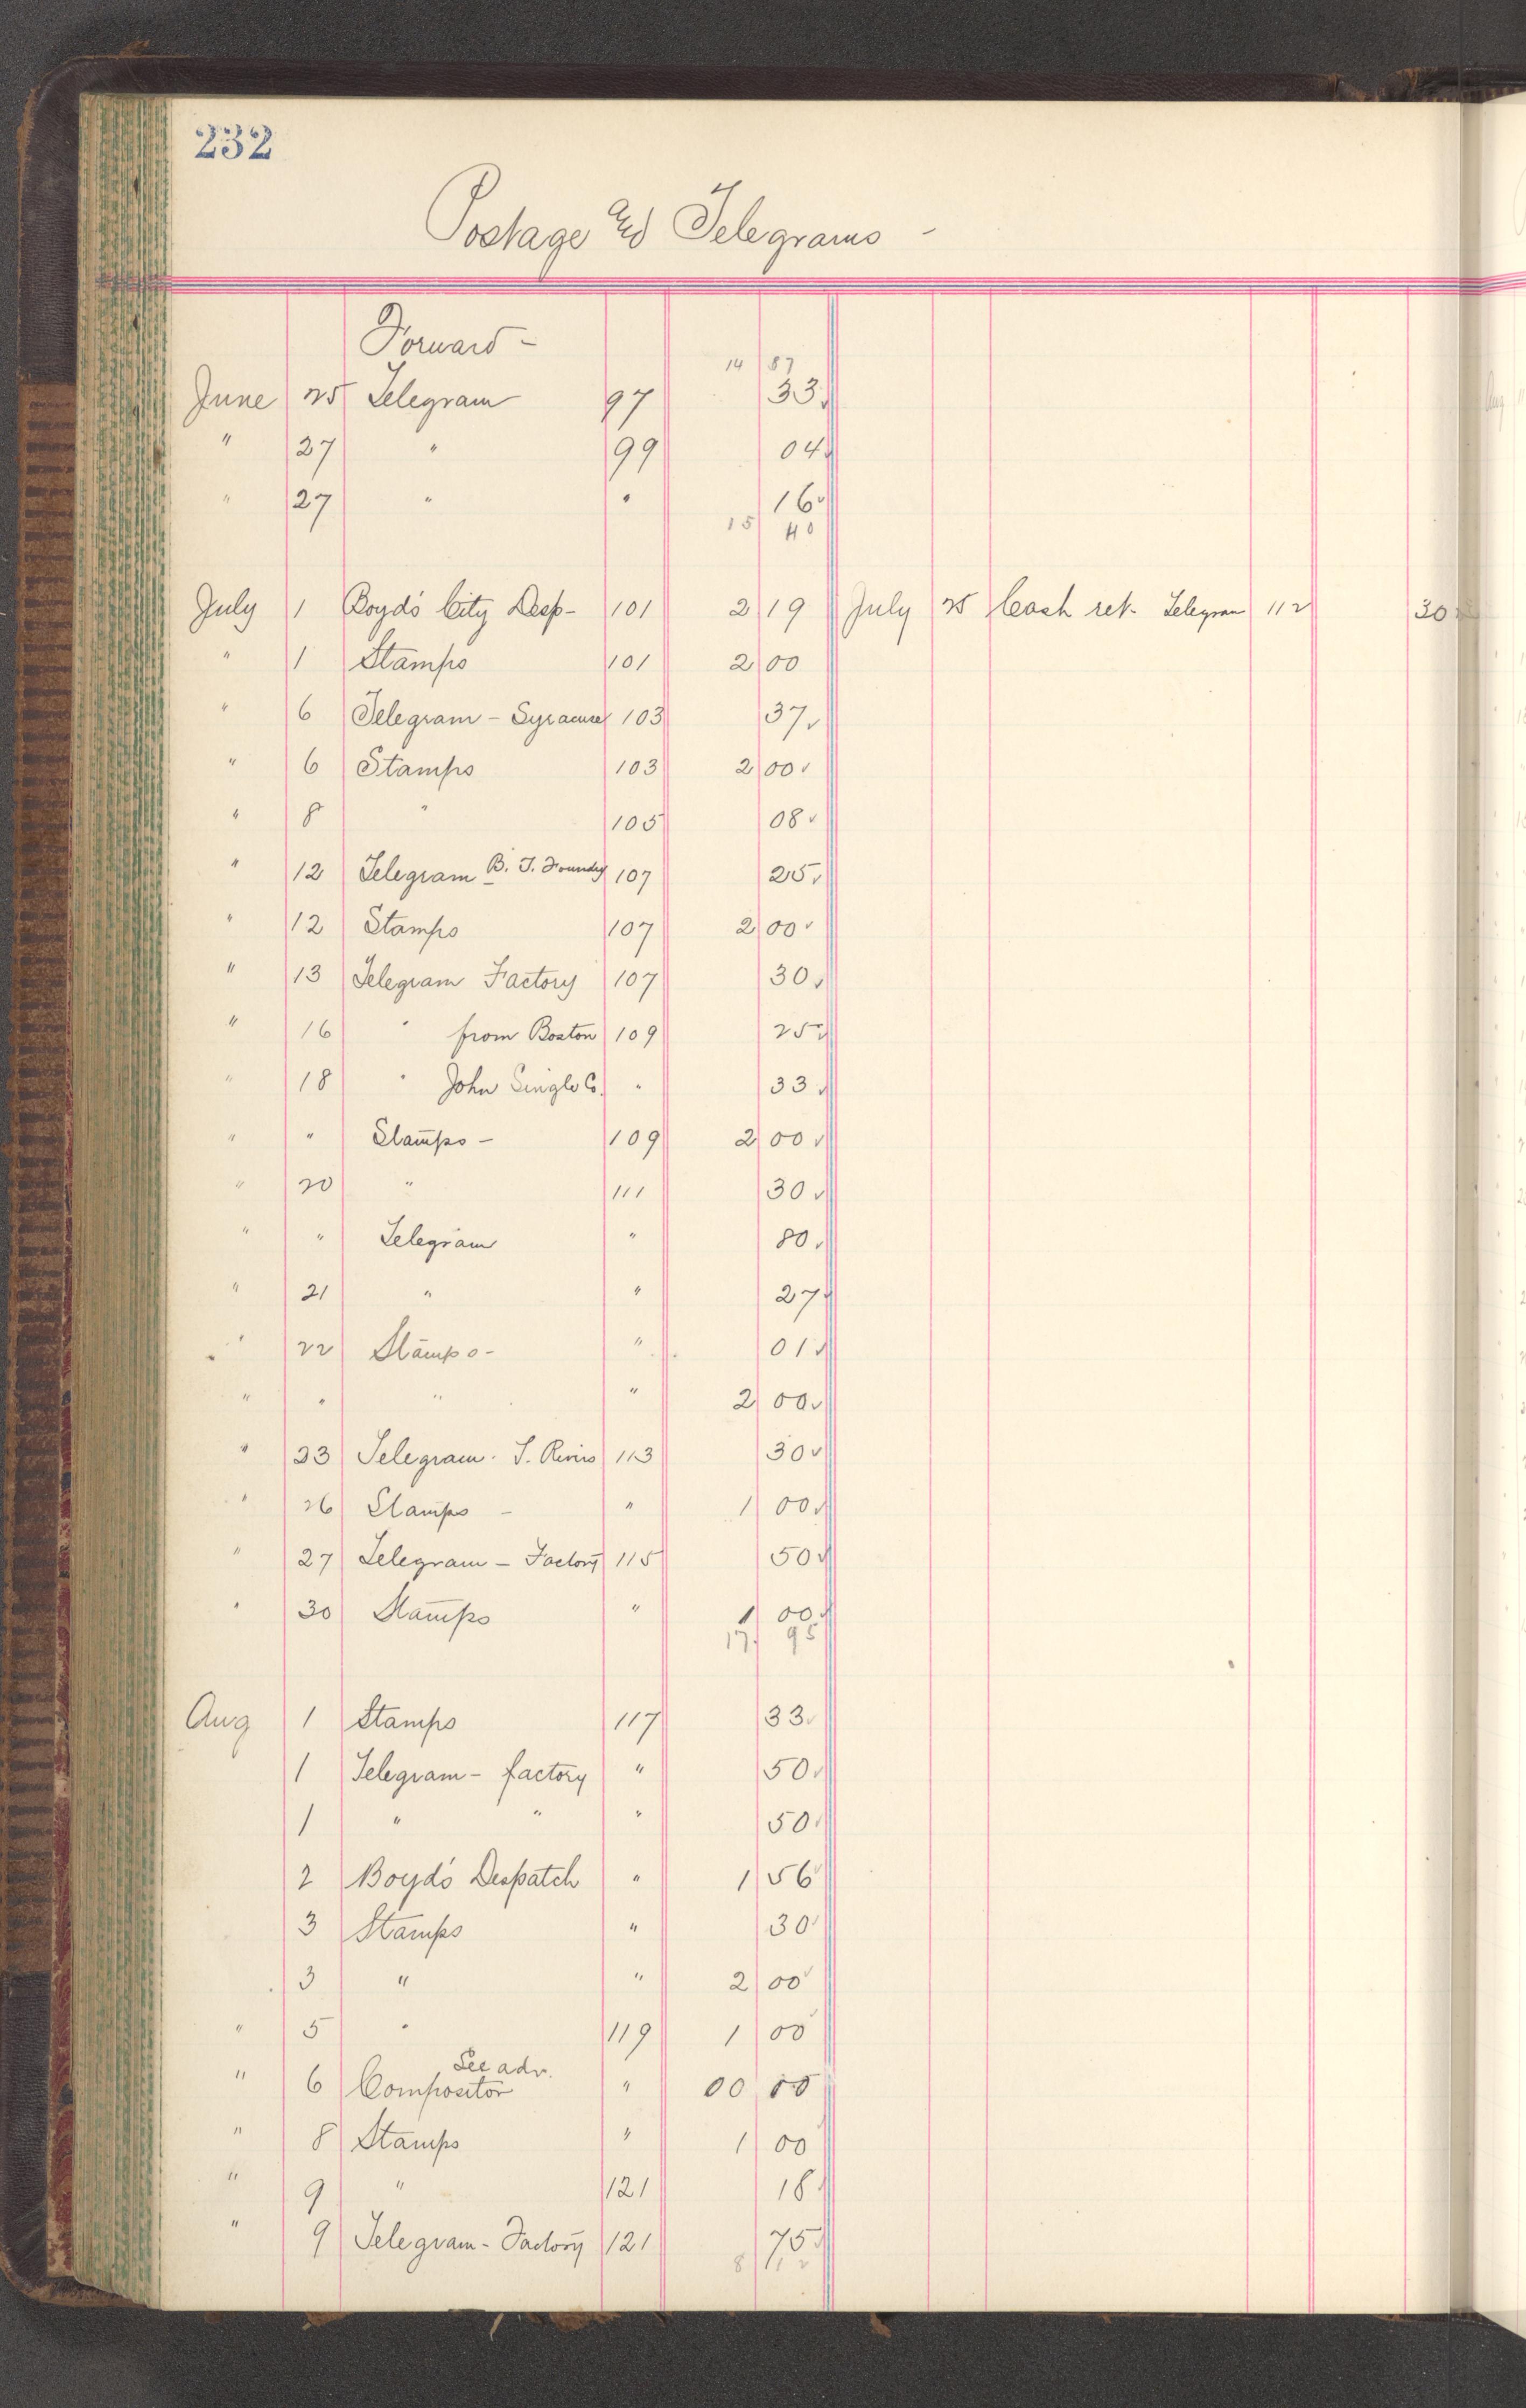 232
Postage and Telegrams -
Forward -
14 87
June 25 Telegram 97 33
" 27 " 99 04
" 27 " " 16
15 40
July 1 Boyd's City Desp- 101 2 19 July 25 Cash ret. Telegram 112 30
" 1 Stamps 101 2 00
" 6 Telegram - Syracuse 103 37
" 6 Stamps 103 2 00
" 8 " 105 08
" 12 Telegram B. T. Foundry 107 25
" 12 Stamps 107 2 00
" 13 Telegram Factory 107 30
" 16 " from Boston 109 25
" 18 " John Single Co. " 33
" " Stamps - 109 2 00
" 20 " 111 30
" " Telegram " 80
" 21 " " 27
" 22 Stamps - " 01
" " " " 2 00
" 23 Telegram. T. Rivers 113 30
" 26 Stamps - " 1 00
" 27 Telegram - Factory 115 50
" 30 Stamps " 1 00
17. 95
Aug 1 Stamps 117 33
1 Telegram - factory " 50
1 " " " 50
2 Boyd's Despatch " 1 56
3 Stamps " 30
3 " " 2 00
" 5 " 119 1 00
See adv.
" 6 Compositor " 00 00
" 8 Stamps " 1 00
" 9 " 121 18
" 9 Telegram - Factory 121 75
8 12